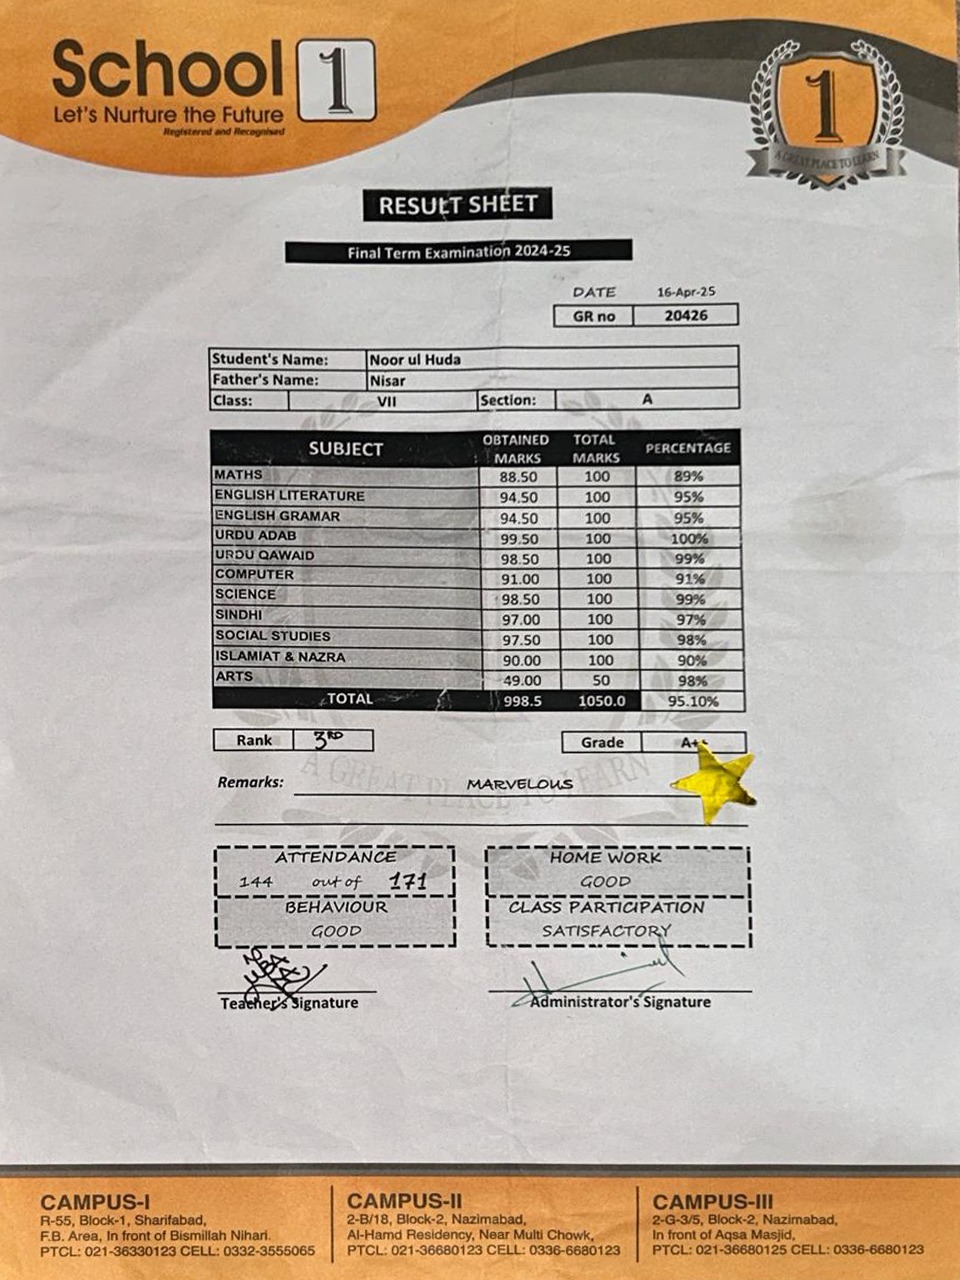 School 1
Let's Nurture the Future
Registered and Recognised
1
A GREAT PLACE TO LEARN
RESULT SHEET
Final Term Examination 2024-25
DATE 16-Apr-25
GR no 20426
Student's Name: Noor ul Huda
Father's Name: Nisar
Class: VII Section: A
SUBJECT OBTAINED MARKS TOTAL MARKS PERCENTAGE
MATHS 88.50 100 89%
ENGLISH LITERATURE 94.50 100 95%
ENGLISH GRAMAR 94.50 100 95%
URDU ADAB 99.50 100 100%
URDU QAWAID 98.50 100 99%
COMPUTER 91.00 100 91%
SCIENCE 98.50 100 99%
SINDHI 97.00 100 97%
SOCIAL STUDIES 97.50 100 98%
ISLAMIAT & NAZRA 90.00 100 90%
ARTS 49.00 50 98%
TOTAL 998.5 1050.0 95.10%
Rank 3RD Grade A++
Remarks: MARVELOUS
A GREAT PLACE TO LEARN
ATTENDANCE
144 out of 171
BEHAVIOUR
GOOD
HOME WORK
GOOD
CLASS PARTICIPATION
SATISFACTORY
Teacher's Signature
Administrator's Signature
CAMPUS-I
R-55, Block-1, Sharifabad,
F.B. Area, In front of Bismillah Nihari.
PTCL: 021-36330123 CELL: 0332-3555065
CAMPUS-II
2-B/18, Block-2, Nazimabad,
Al-Hamd Residency, Near Multi Chowk,
PTCL: 021-36680123 CELL: 0336-6680123
CAMPUS-III
2-G-3/5, Block-2, Nazimabad,
In front of Aqsa Masjid,
PTCL: 021-36680125 CELL: 0336-6680123